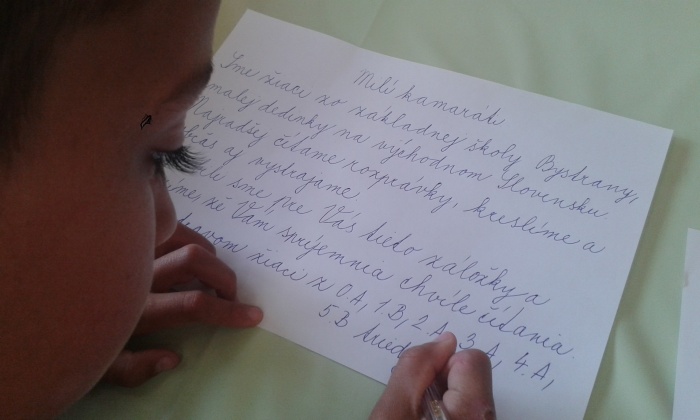 Milí kamaráti
Sme žiaci zo základnej školy Bystrany,
malej dedinky na východnom Slovensku.
Najradšej čítame rozprávky, kreslíme a
aj vystrajame
sme pre Vás tieto záložky a
že Vám spríjemnia chvíle čítania.
žiaci z 0.A, 1.B, 2.A, 3.A, 4.A,
5B